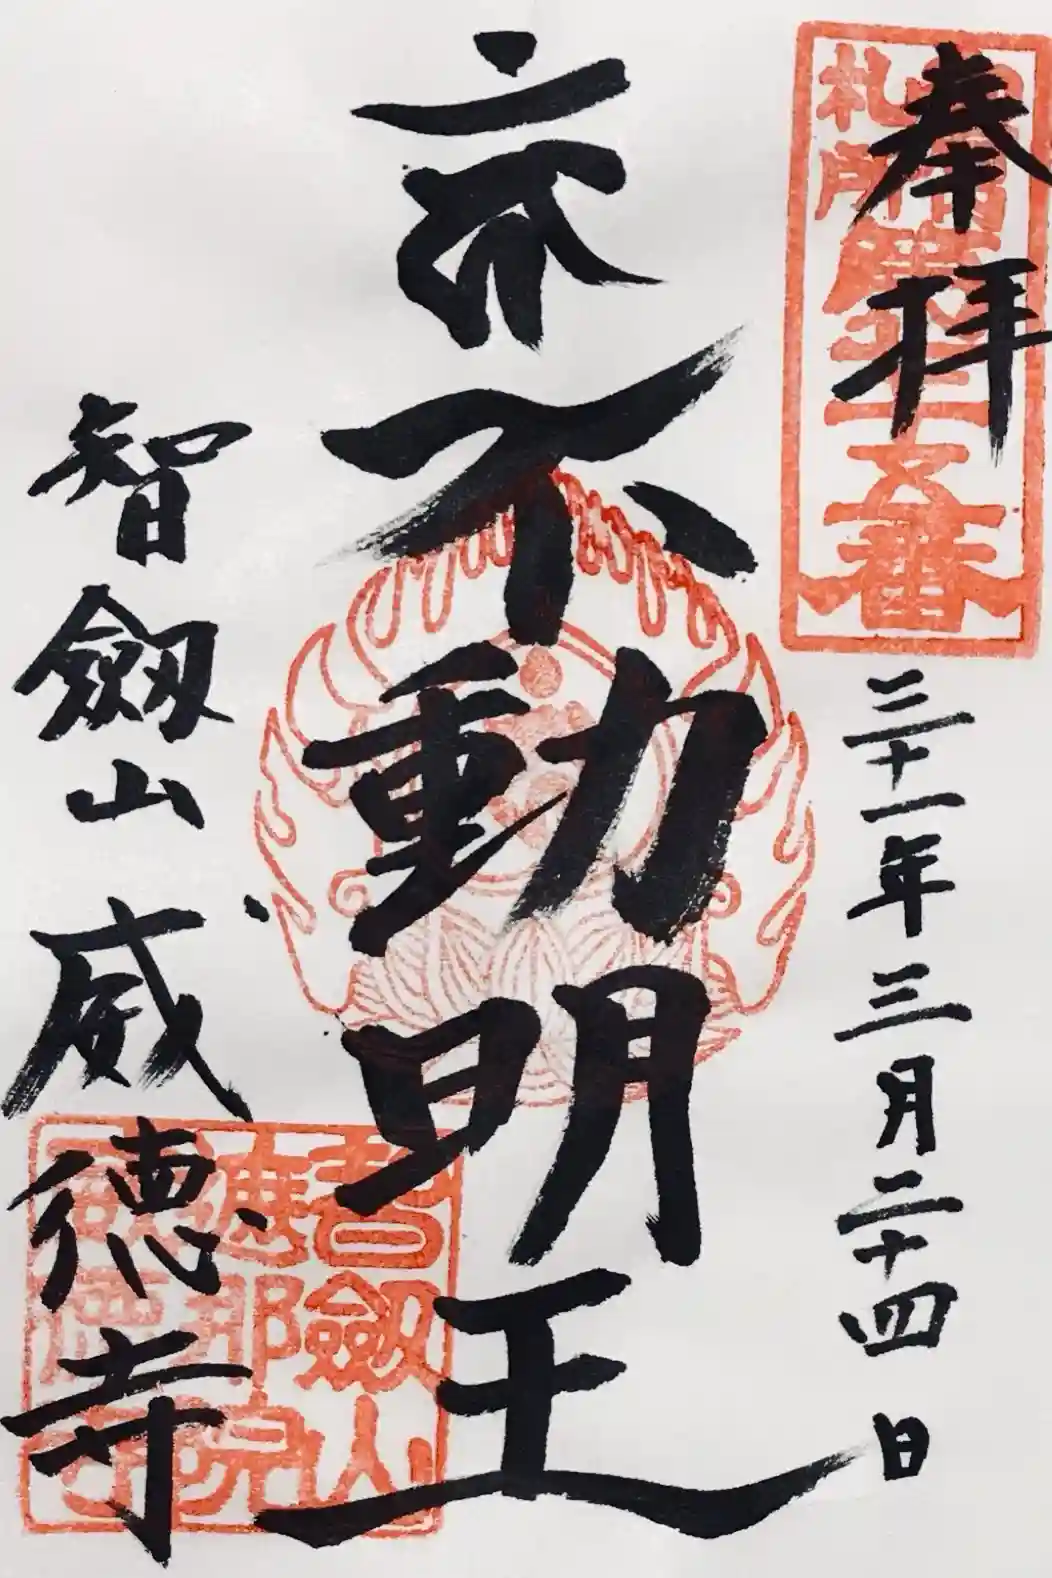 奉拝
札所
第七十五番
三十一年三月二十四日
不動明王
智劔山威徳寺
智劔山
遮那院
威徳寺